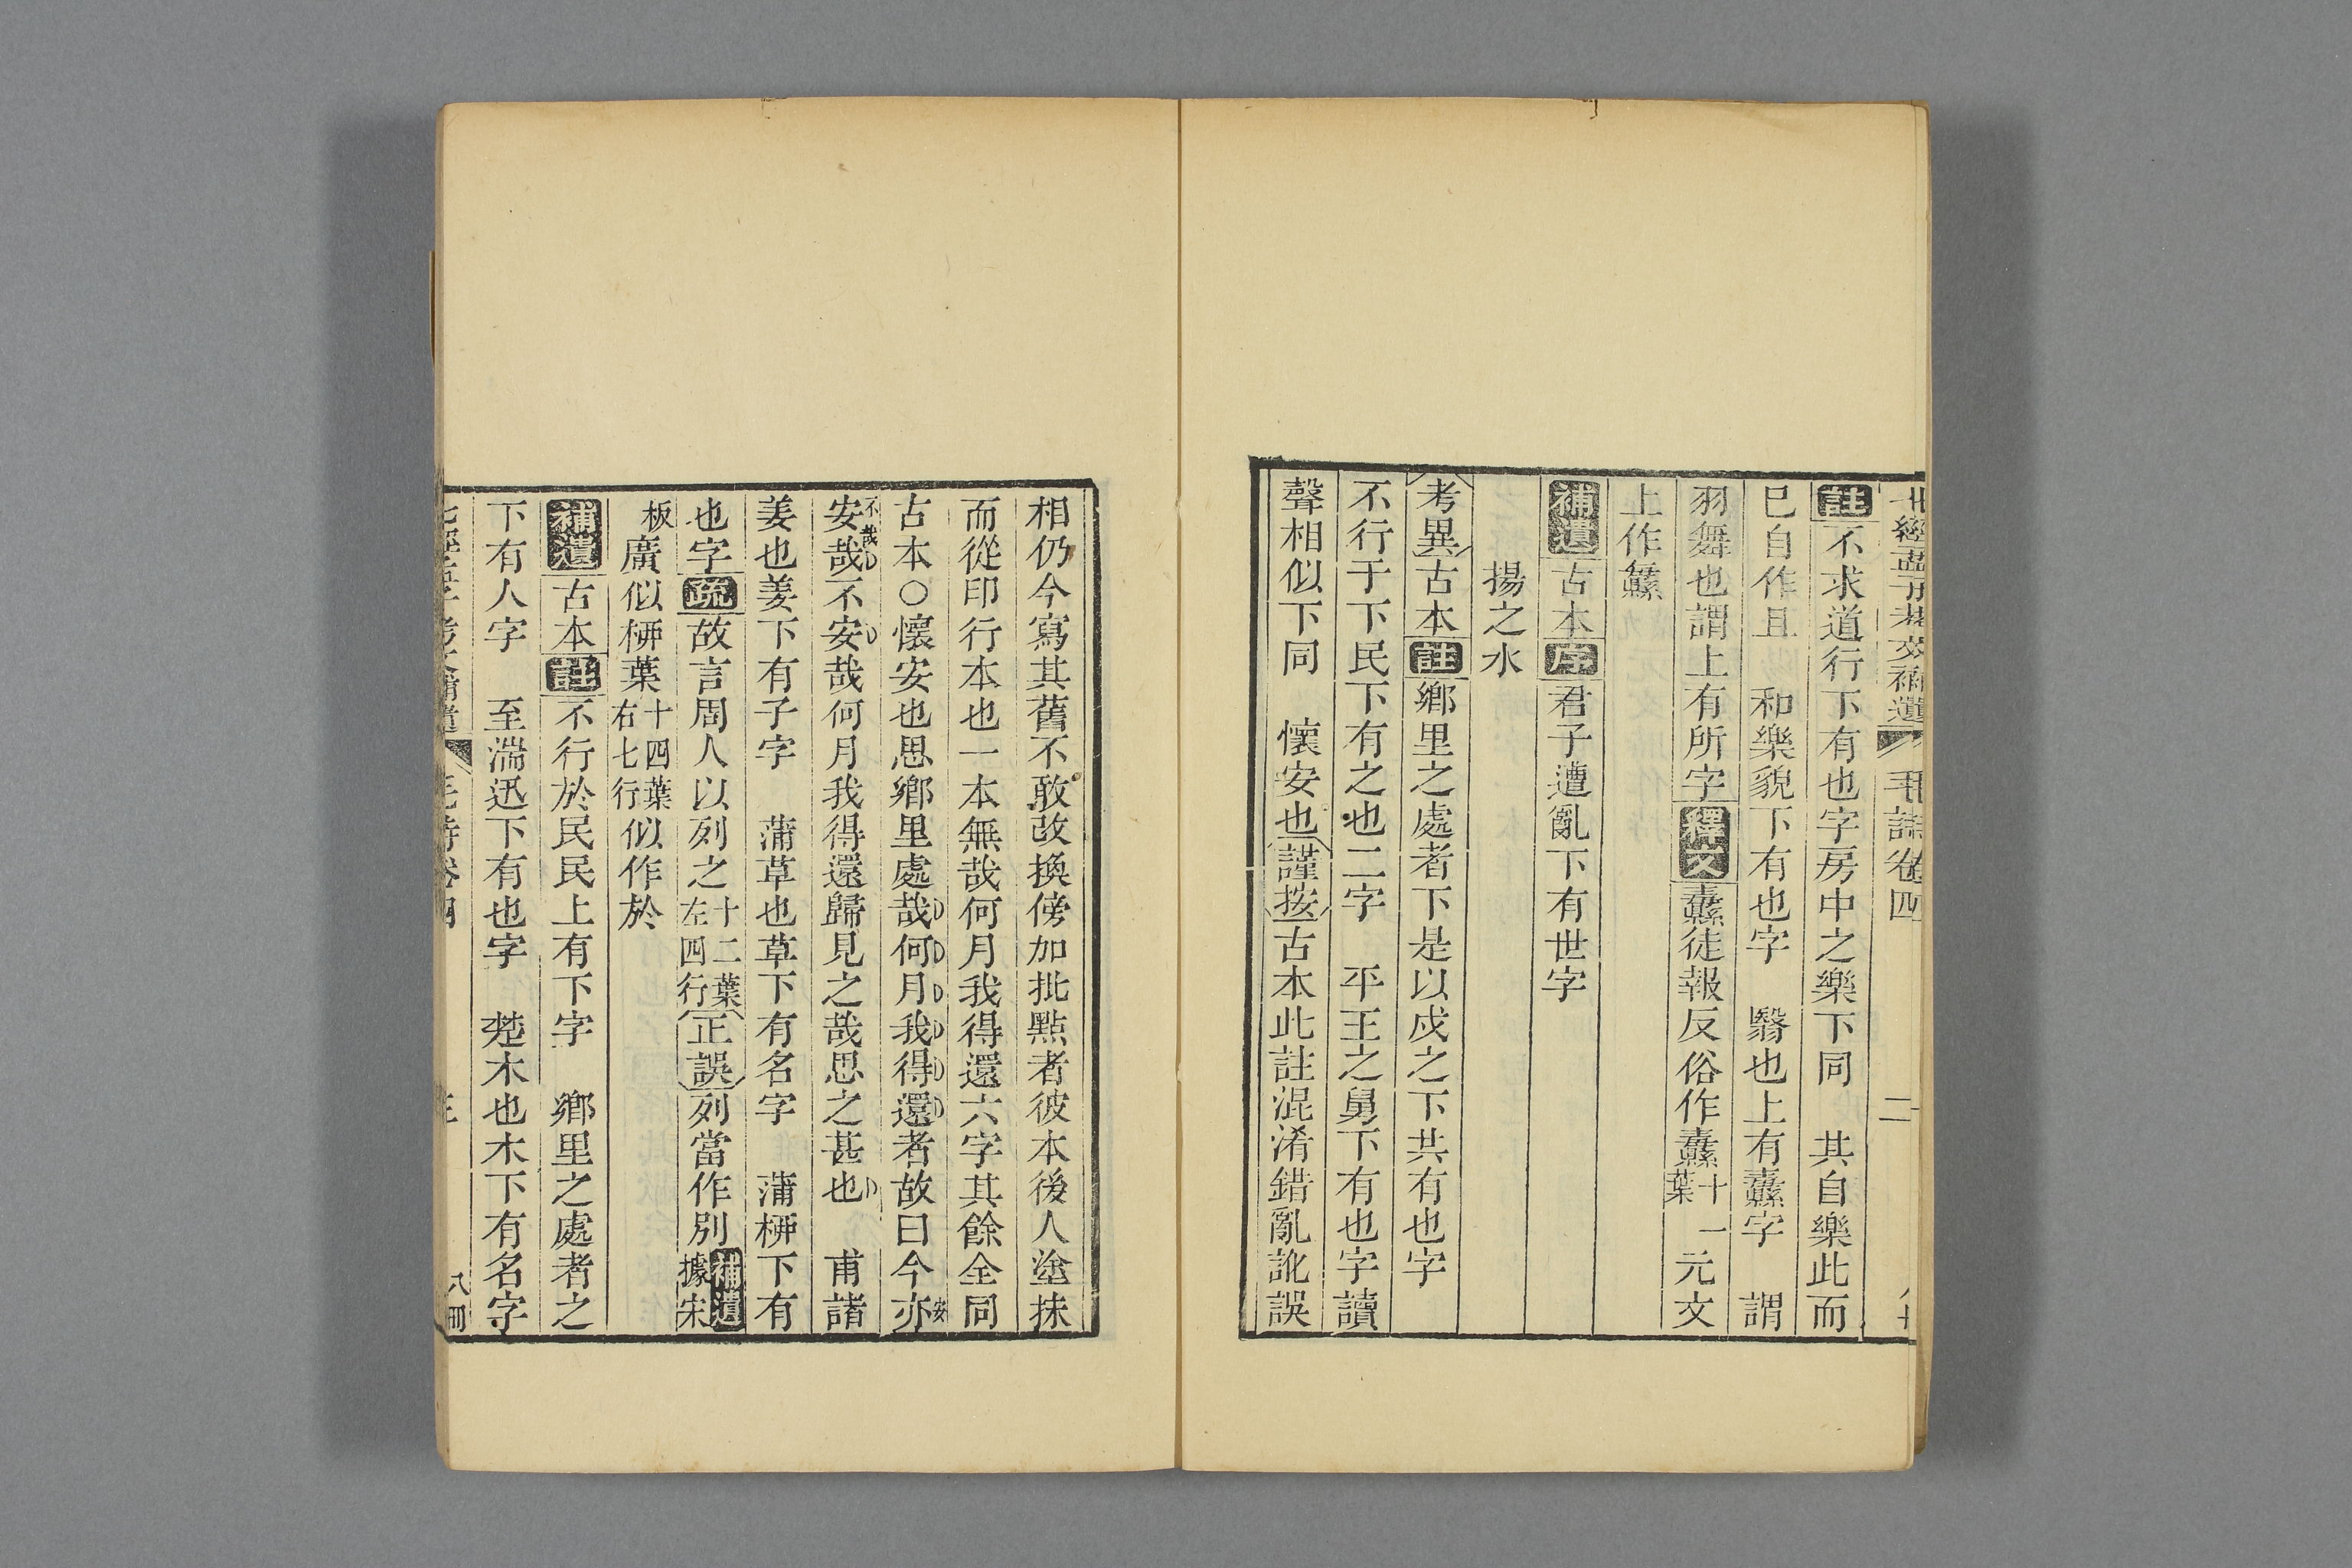 七經孟子考文補遺 毛詩卷四 二
註不求道行下有也字房中之樂下同 其自樂此而
巳自作且 和樂貌下有也字 翳也上有纛字 謂
羽舞也謂上有所字釋文纛徒報反俗作纛十一葉元文
上作䌛
補遺古本序君子遭亂下有世字
揚之水
考異古本註鄉里之處者下是以戍之下共有也字
不行于下民下有之也二字 平王之舅下有也字讀
聲相似下同 懷安也謹按古本此註混淆錯亂訛誤
相仍今寫其舊不敢改換傍加批點者彼本後人塗抹
而從印行本也一本無哉何月我得還六字其餘全同
古本○懷安也思鄉里處哉何月我得還者故曰今亦安
不哉安哉不安哉何月我得還歸見之哉思之甚也 甫諸
姜也姜下有子字 蒲草也草下有名字 蒲柳下有
也字疏故言周人以列之十二葉左四行正誤列當作別補遺據宋
板廣似柳葉十四葉右七行似作於
補遺古本註不行於民民上有下字 鄉里之處者之
下有人字 至湍迅下有也字 楚木也木下有名字
毛詩卷四 三 八冊